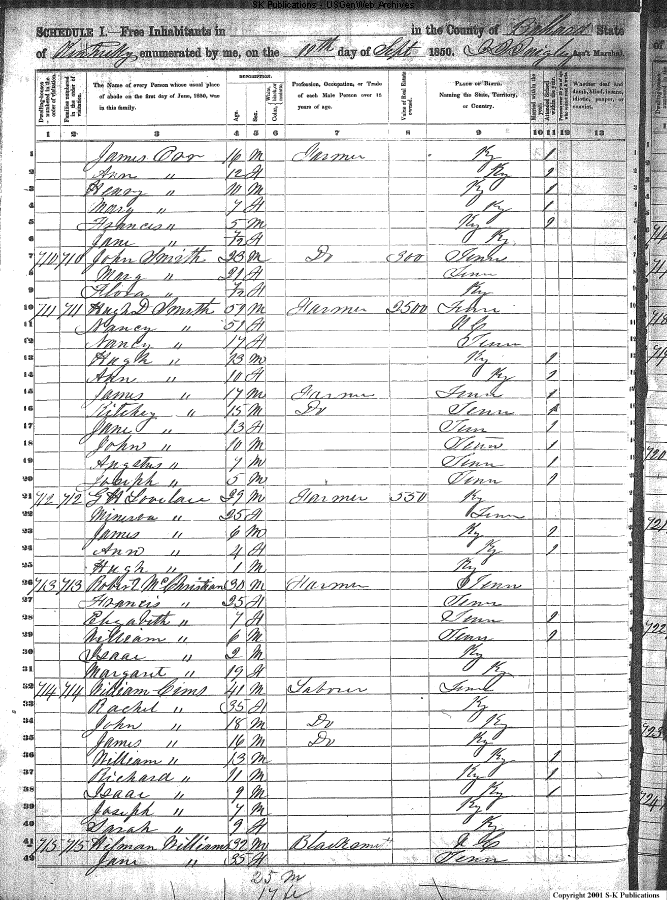 SK Publications / USGenWeb Archives
SCHEDULE I.—Free Inhabitants in in the County of Ballard State
of Kentucky enumerated by me, on the 10th day of Sept 1850. Ass't Marshal.
DESCRIPTION.
Dwelling-houses numbered in the order of visitation.
Families numbered in the order of visitation.
The Name of every Person whose usual place of abode on the first day of June, 1850, was in this family.
Age.
Sex.
Color,
Profession, Occupation, or Trade of each Male Person over 15 years of age.
Value of Real Estate owned.
PLACE OF BIRTH.
Naming the State, Territory, or Country.
Whether deaf and dumb, blind, insane, idiotic, pauper, or convict.
1 2 3 4 5 6 7 8 9 10 11 12 13
1 James 16 M Farmer Ky 1
2 Ann " 12 F Ky 1
3 Henry " 10 M Ky 1
4 Mary " 7 F Ky 1
5 Frances " 5 M Ky 1
6 Jane " F Ky
7 710 710 John Smith 23 M Do 300 Tenn
8 Mary " 21 F Tenn
9 " F Ky
10 711 711 Hugh D Smith 57 M Farmer 2500 Tenn
11 Nancy " 51 F N C
12 Nancy " 17 F Tenn
13 Hugh " 23 M Ky 1
14 Ann " 10 F Ky 1
15 James " 17 M Farmer Tenn 1
16 Ritchey " 15 M Do Tenn 1
17 Jane " 13 F Tenn 1
18 John " 10 M Tenn 1
19 Angstus " 7 M Tenn 1
20 Joseph " 5 M Tenn 1
21 712 712 G H Lovelace 29 M Farmer 550 Ky
22 Minerva " 25 F Tenn
23 James " 6 M Ky 1
24 Ann " 4 F Ky 1
25 Hugh " 1 M Ky
26 713 713 Robert McChristian 30 M Farmer Tenn
27 Francis " 25 F Tenn
28 Elizabeth " 7 F Tenn 1
29 William " 6 M Tenn 1
30 Isaac " 2 M Ky
31 Margaret " 19 F Ky
32 714 714 William Cims 41 M Laborer Tenn
33 Rachel " 35 F Ky
34 John " 18 M Do Ky
35 James " 16 M Do Ky
36 William " 13 M Ky 1
37 Richard " 11 M Ky 1
38 Isaac " 9 M Ky 1
39 Joseph " 7 M Ky
40 Sarah " 9 F Ky
41 715 715 Wilman Williams 32 M Blacksmith
42 Jane " 35 F Tenn
25 M
17 F
720
721
722
723
724
Copyright 2001 S-K Publications